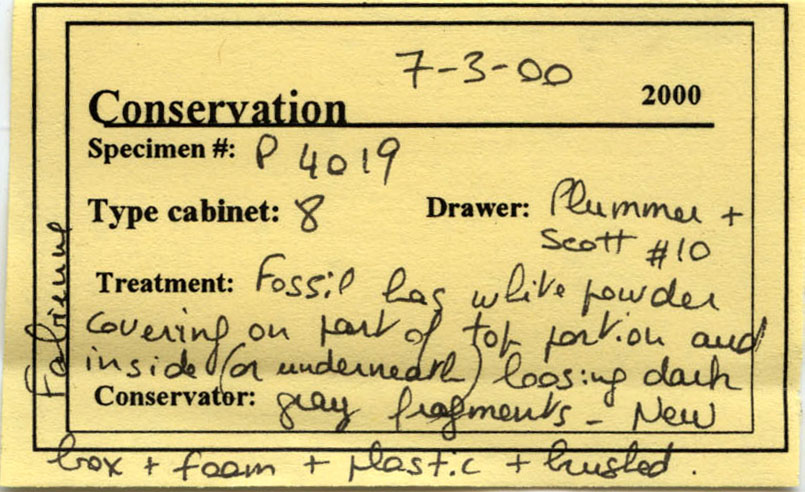 7-3-00
Conservation 2000
Specimen #: P 4019
Type cabinet: 8 Drawer: Plummer +
Scott #10
Treatment: Fossil has white powder
covering on part of top portion and
inside (or underneath) loosing dark
Conservator: gray fragments - New
box + foam + plastic + busted.
Fabienne